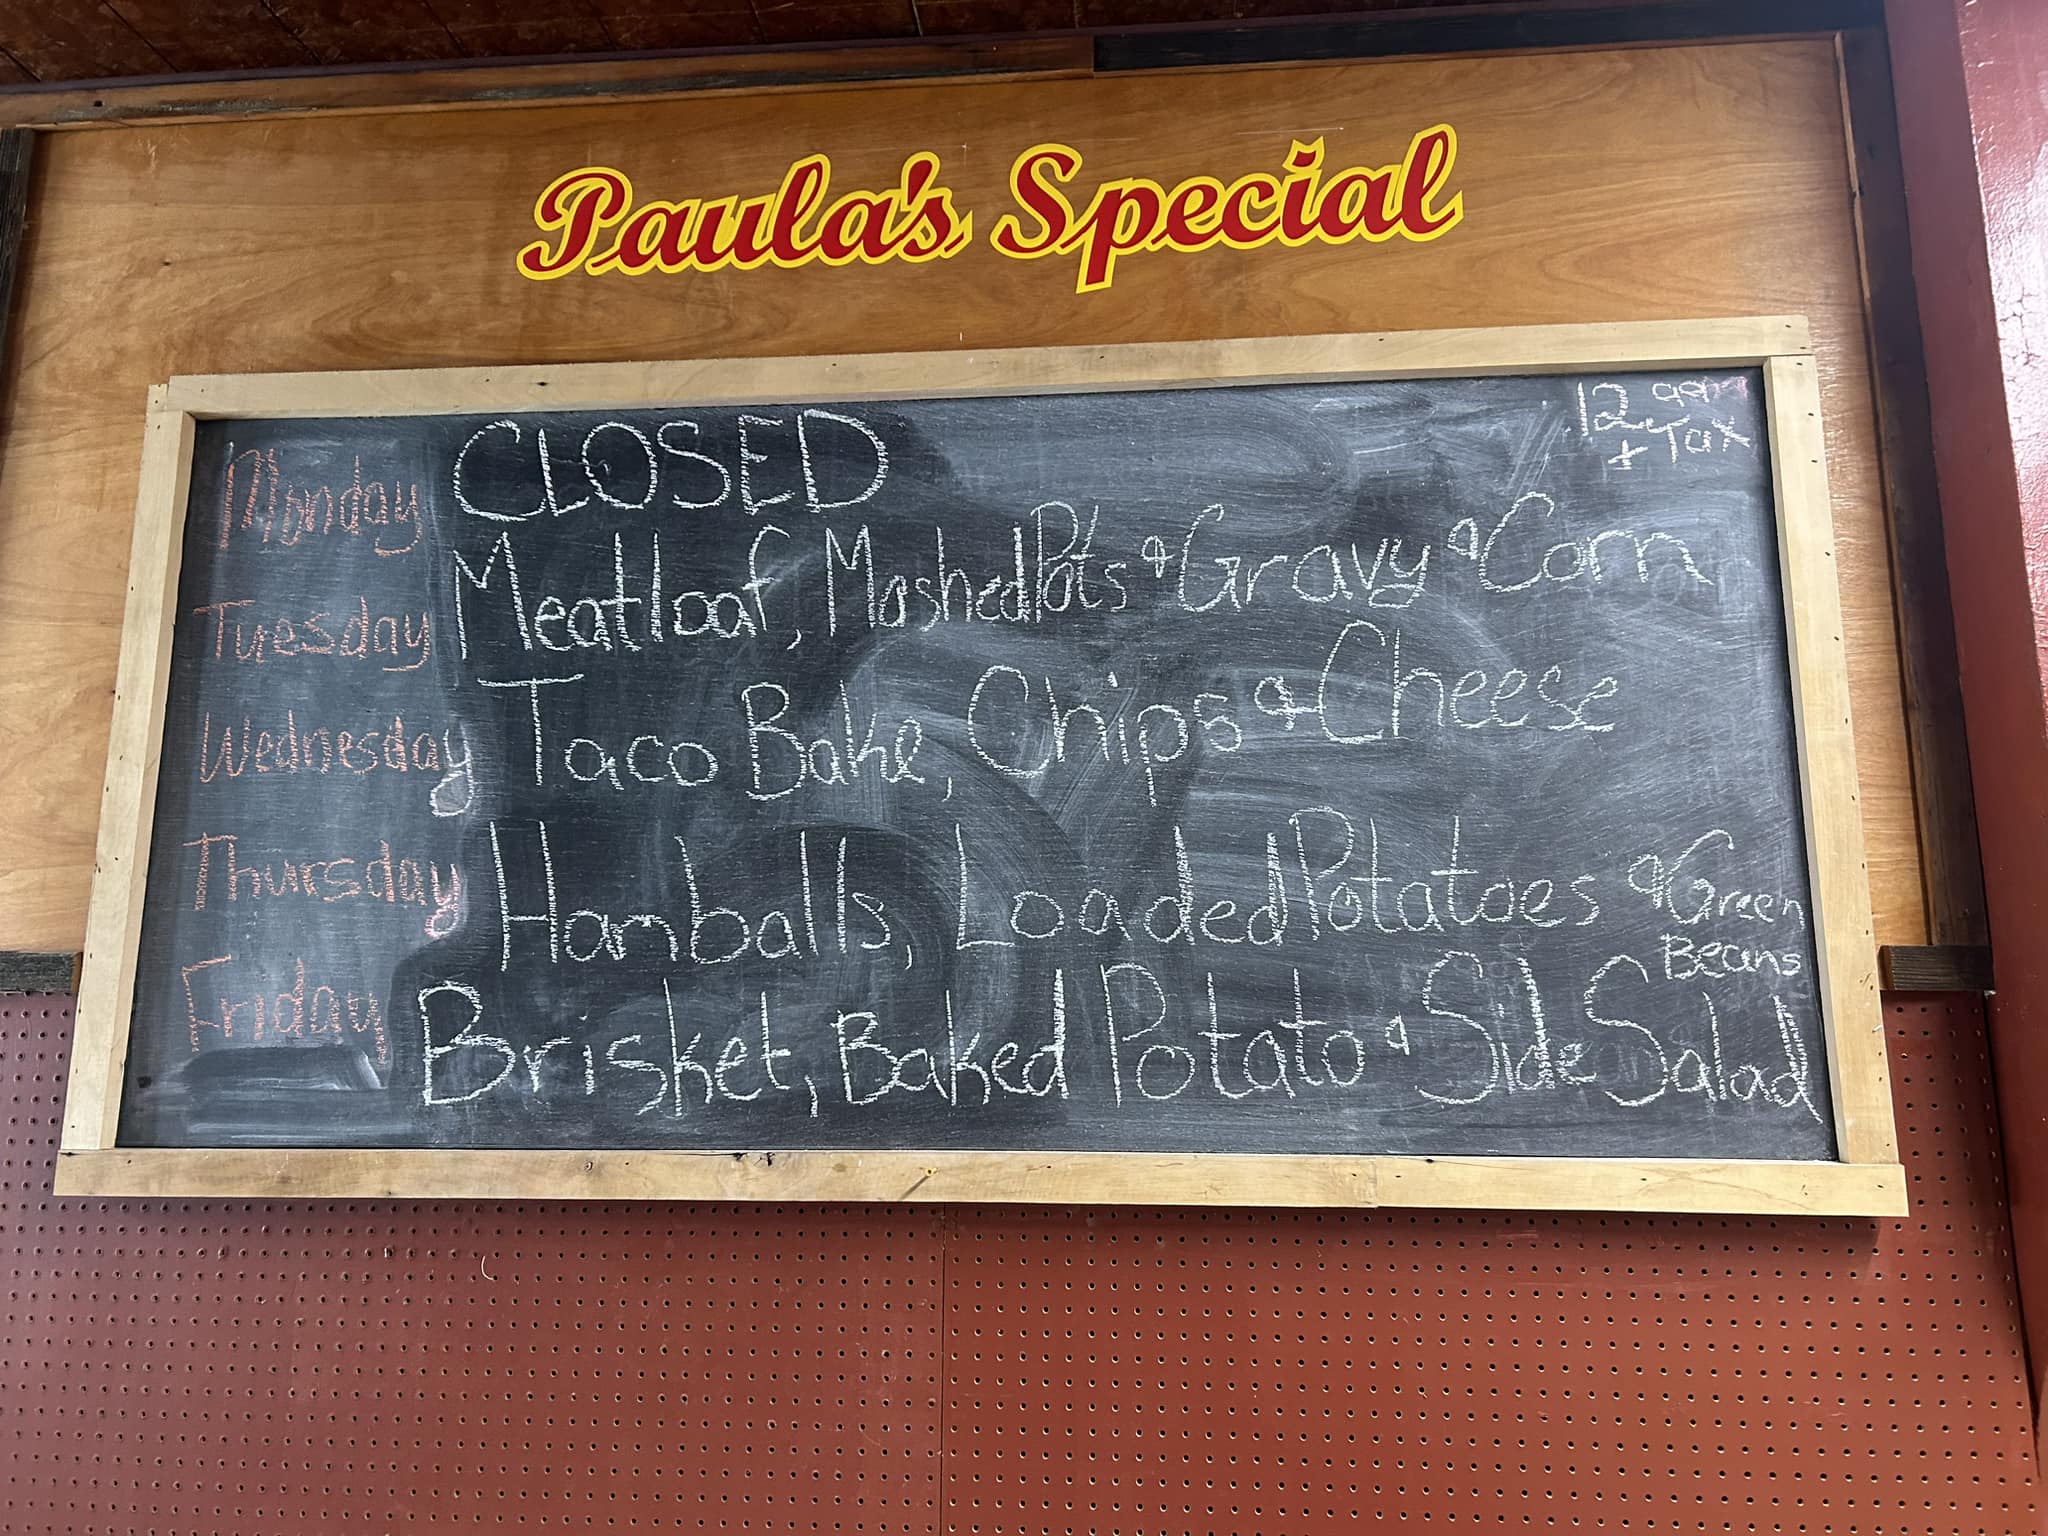 Paula's Special
12.99
+ Tax
Monday CLOSED
Tuesday Meatloaf, Mashed Pots & Gravy & Corn
Wednesday Taco Bake, Chips & Cheese
Thursday Hamballs, Loaded Potatoes & Green
Beans
Friday Brisket, Baked Potato & Side Salad